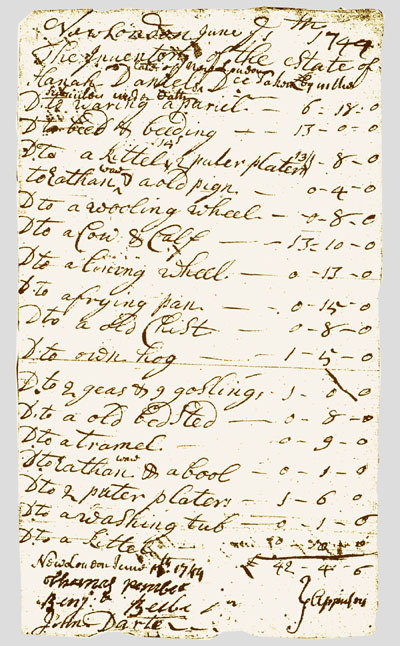 New London June 7th 1744
The Inventory of the Estate of
late of New London
Hanah Dander Decd Taken by us the
D: to waring Apariel — 6 - 18 - 0
D: to bed & beding — 13 - 0 - 0
D: to a kittel & puter platers 13/ - 8 - 0
to Eathan waer a old pign — 0 - 4 - 0
D: to a wooling wheel — 0 - 8 - 0
D: to a Cow & Calf — 13 - 10 - 0
D: to a lining wheel — 0 - 13 - 0
D: to a frying pan — 0 - 15 - 0
D: to a old Chist — 0 - 8 - 0
D: to own hog — 1 - 5 - 0
D: to 2 geas & 9 goslings - 1 - 0 - 0
D: to a old bedsted — 0 - 8 - 0
D: to a tramel — 0 - 9 - 0
D: to Eathan waer & a bool — 0 - 1 - 0
D: to 2 puter platers — 1 - 6 - 0
D: to a washing tub — 0 - 1 - 6
D: to a kittel
New London June 1744 £ 42 - 4 - 6
Thomas
Benj:
John Darte